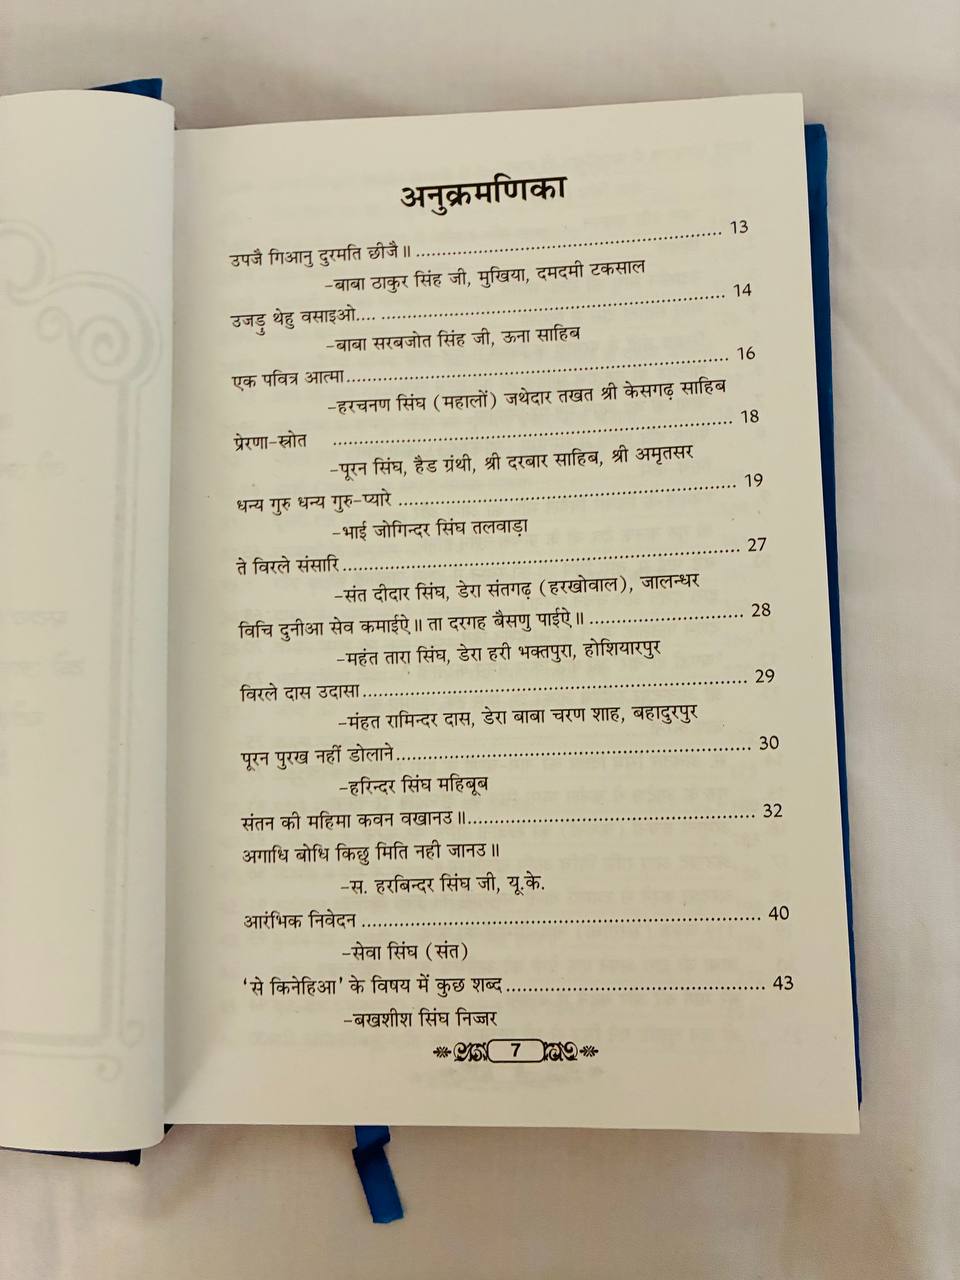 अनुक्रमणिका
उपजै गिआनु दुरमति छीजै॥ ........................................................ 13
–बाबा ठाकुर सिंह जी, मुखिया, दमदमी टकसाल
उजड़ु थेहु वसाइओ.... ................................................................ 14
–बाबा सरबजोत सिंह जी, ऊना साहिब
एक पवित्र आत्मा....................................................................... 16
–हरचनण सिंघ (महालों) जथेदार तखत श्री केसगढ़ साहिब
प्रेरणा-स्रोत ......................................................................... 18
–पूरन सिंघ, हैड ग्रंथी, श्री दरबार साहिब, श्री अमृतसर
धन्य गुरु धन्य गुरु-प्यारे ............................................................. 19
–भाई जोगिन्दर सिंघ तलवाड़ा
ते विरले संसारि......................................................................... 27
–संत दीदार सिंघ, डेरा संतगढ़ (हरखोवाल), जालन्धर
विचि दुनीआ सेव कमाईऐ॥ ता दरगह बैसणु पाईऐ॥ ............................. 28
–महंत तारा सिंघ, डेरा हरी भक्तपुरा, होशियारपुर
विरले दास उदासा...................................................................... 29
–मंहत रामिन्दर दास, डेरा बाबा चरण शाह, बहादुरपुर
पूरन पुरख नहीं डोलाने................................................................ 30
–हरिन्दर सिंघ महिबूब
संतन की महिमा कवन वखानउ॥.................................................... 32
अगाधि बोधि किछु मिति नही जानउ॥
–स. हरबिन्दर सिंघ जी, यू.के.
आरंभिक निवेदन ........................................................................ 40
–सेवा सिंघ (संत)
'से किनेहिआ' के विषय में कुछ शब्द.............................................. 43
–बखशीश सिंघ निज्जर
7